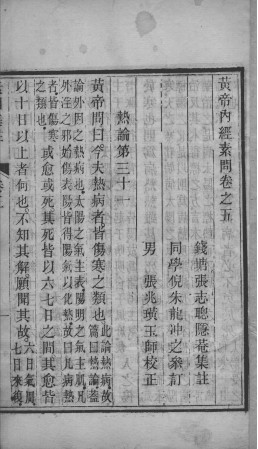 黃帝內經素問卷之五
錢塘張志聰隱菴集註
同學倪朱龍冲之叅訂
男 張兆璜玉師校正
熱論第三十一
黃帝問曰今夫熱病者皆傷寒之類也此論熱病故篇曰熱論蓋
論外因之熱病也太陽之氣主表陽明之氣主肌凡
外淫之邪始傷表陽皆得陽氣以化熱故曰凡病熱
者皆傷寒之類也或愈或死其死皆以六七日之間其愈皆
以十日以上者何也不知其解願聞其故六日氣周七日來復